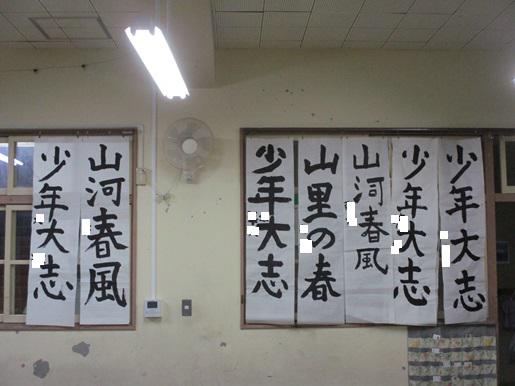 少年大志
少年大志
山河春風
山里の春
少年大志
山河春風
少年大志